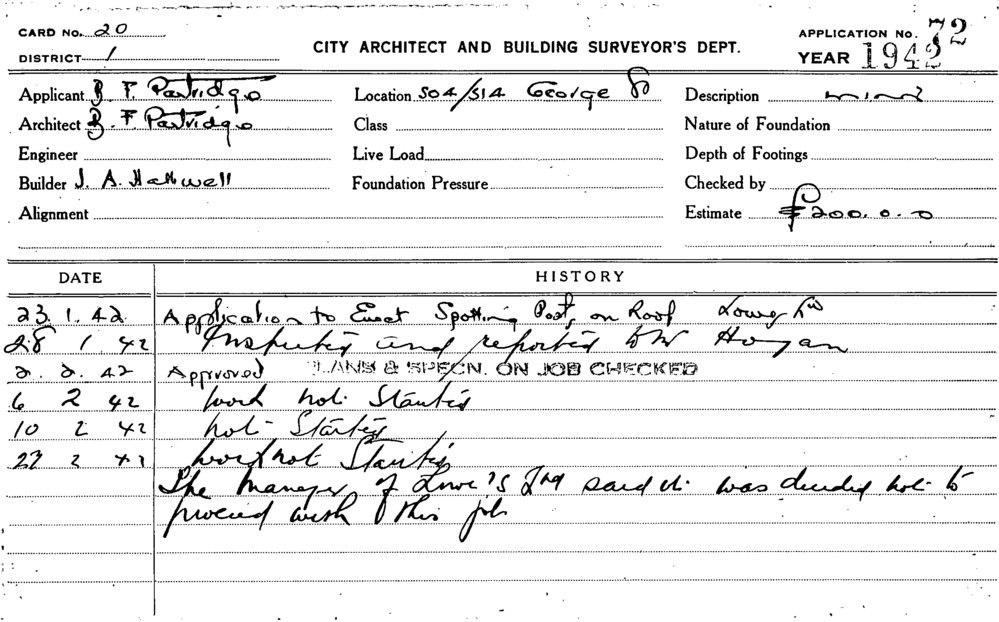 CARD No. 20
DISTRICT 1
CITY ARCHITECT AND BUILDING SURVEYOR'S DEPT.
APPLICATION No. 72
YEAR 1942
Applicant B. F. Partridge
Location 504/514 George St
Description minor
Architect B. F. Partridge
Class
Nature of Foundation
Engineer
Live Load
Depth of Footings
Builder J. A. Hallwell
Foundation Pressure
Checked by
Alignment
Estimate £200.0.0
DATE HISTORY
23.1.42 Application to Erect Spotting Post, on Roof Lowes Ltd
28 1 42 Inspected and reported to Mr Hogan
2.2.42 Approved PLANS & SPECN. ON JOB CHECKED
6 2 42 Work not Started
10 2 42 not Started
27 2 42 work not Started
The Manager of Lowe's Ltd said it was decided not to
proceed with this job